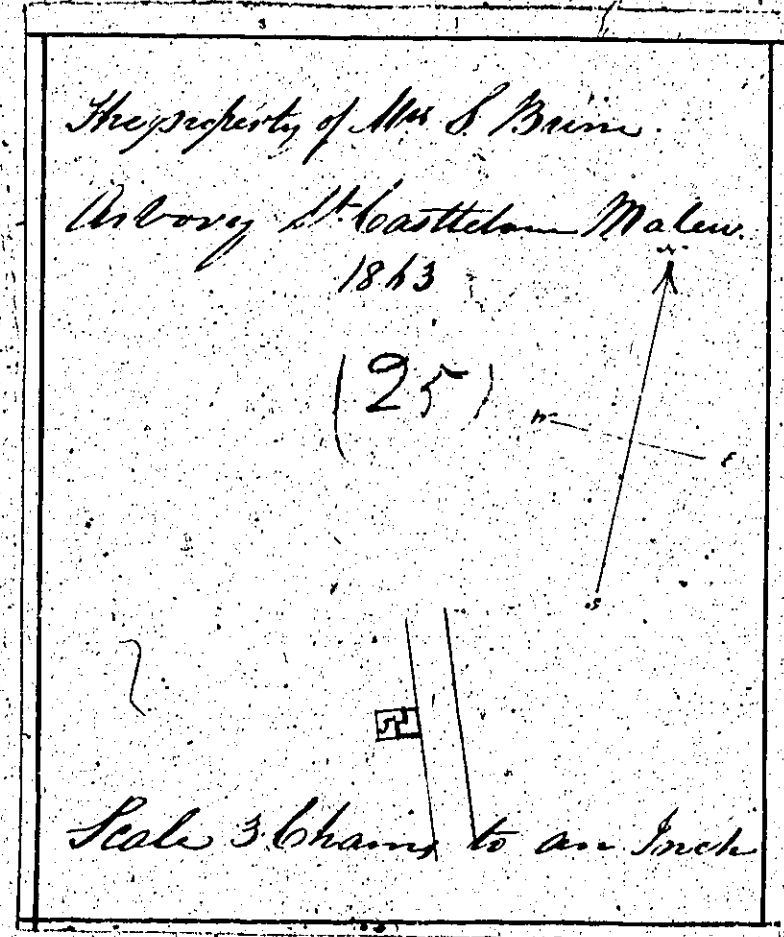 The property of Mrs S. Brine.
Arbory St. Castletown Malew.
1863
(25)
N
W
E
S
Scale 3 Chains to an Inch